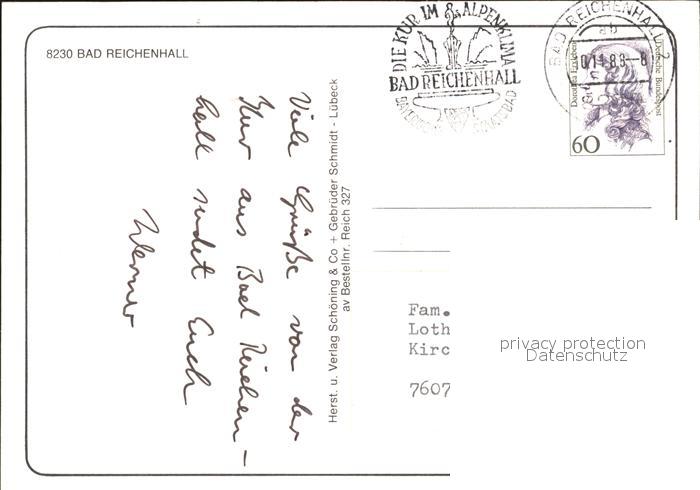 8230 BAD REICHENHALL
DIE KUR IM ALPENKLIMA
BAD REICHENHALL
BAD REICHENHALL 2
Dorothea Erxleben
Deutsche Bundespost
60
Viele Grüße von der
Kur aus Bad Reichen-
hall sendet Euch
Werner
Herst. u. Verlag Schöning & Co + Gebrüder Schmidt - Lübeck
av Bestellnr. Reich 327
Fam.
Loth
Kirc
7607
privacy protection
Datenschutz